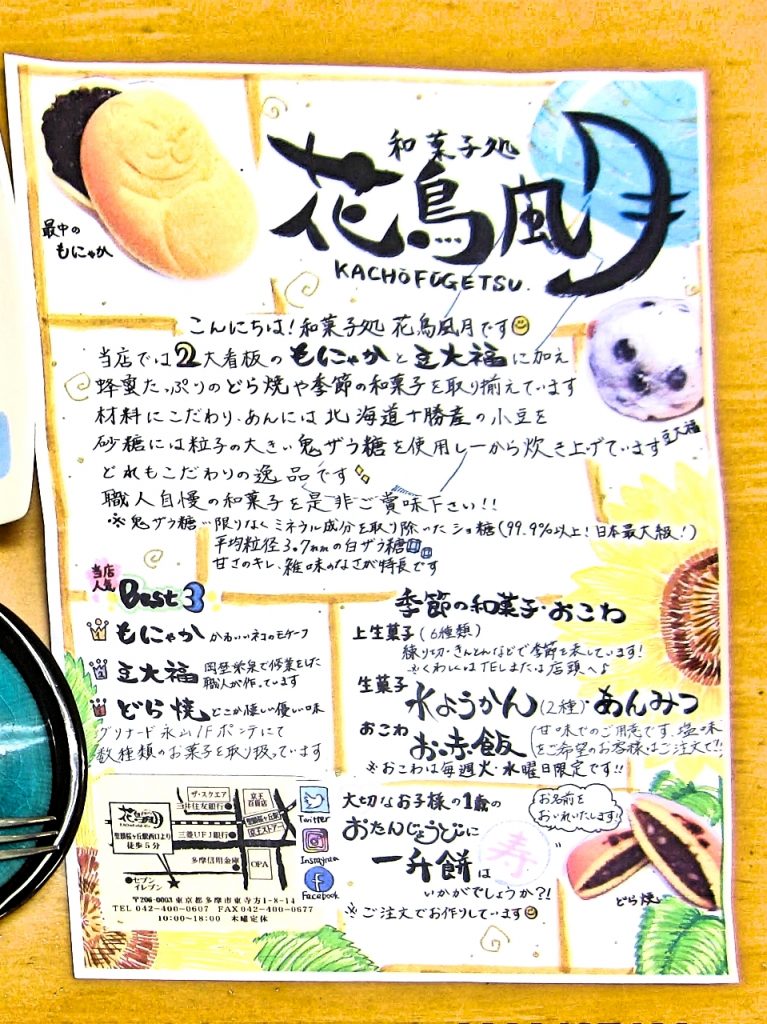 和菓子処
花鳥風月
KACHŌFŪGETSU.
最中の
もにゃか
こんにちは!和菓子処 花鳥風月です
当店では2大看板のもにゃかと豆大福に加え
蜂蜜たっぷりのどら焼や季節の和菓子を取り揃えています
材料にこだわり、あんには北海道十勝産の小豆を
砂糖には粒子の大きい鬼ザラ糖を使用し一から炊き上げています
豆大福
どれもこだわりの逸品です
職人自慢の和菓子を是非ご賞味下さい!!
※鬼ザラ糖…限りなくミネラル成分を取り除いたショ糖(99.9%以上!日本最大級!)
平均粒径3.7mmの白ザラ糖
甘さのキレ、雑味のなさが特長です
当店
人気
Best3
1 もにゃか かわいいネコのモチーフ
2 豆大福 岡埜栄泉で修業をした
職人が作っています
3 どら焼 どこか懐しい優しい味
グリナード永山1Fポンテにて
数種類のお菓子を取り扱っています
季節の和菓子・おこわ
上生菓子(6種類)
練り切・きんとんなどで季節を表しています!
※くわしくはTELまたは店頭へ♪
生菓子
水ようかん(2種)・あんみつ
おこわ
お赤飯
(甘味でのご用意です、塩味
をご希望のお客様はご注文で!!
※おこわは毎週火・水曜日限定です!!
ザ・スクエア
三井住友銀行
京王
百貨店
花鳥風月
聖蹟桜ヶ丘駅西口より
徒歩5分
三菱UFJ銀行
聖蹟桜ヶ丘駅
京王ストアー
多摩信用金庫
OPA
セブン
イレブン
〒206-0003 東京都多摩市東寺方1-8-14
TEL 042-400-0607 FAX 042-400-0677
10:00~18:00 木曜定休
Twitter
Instagram
Facebook
大切なお子様の1歳の
おたんじょうびに
一升餅は
いかがでしょうか?!
※ご注文でお作りしています
お名前を
お入れいたします!
寿
どら焼